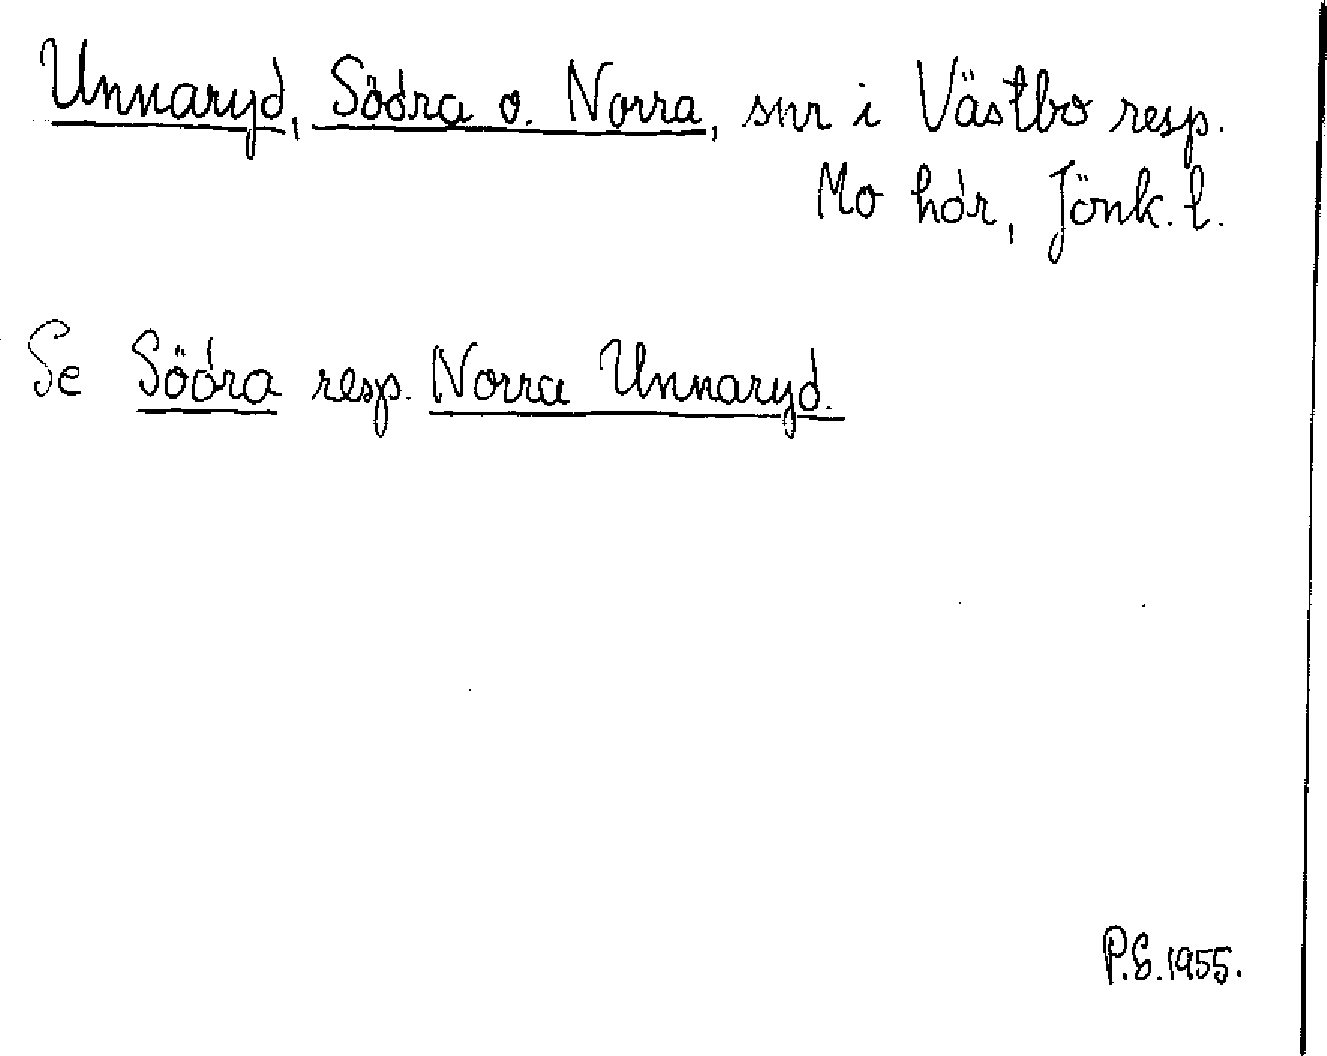 Unnaryd, Södra o. Norra, snr i Västbo resp.
Mo hdr, Jönk. l.
Se Södra resp. Norra Unnaryd.
P.S. 1955.